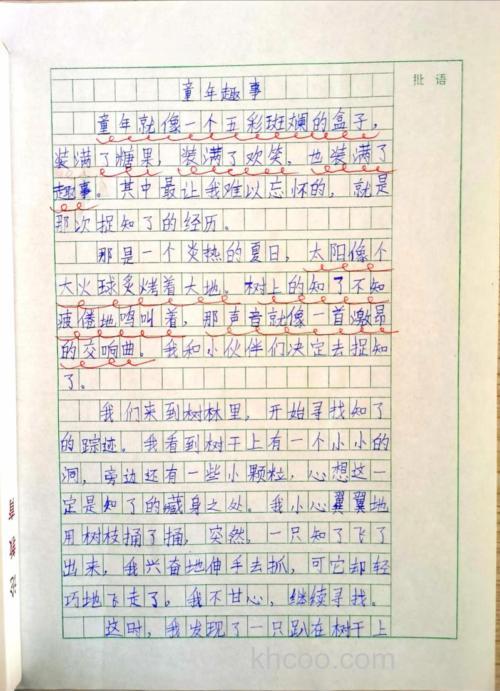 批语
童年趣事
童年就像一个五彩斑斓的盒子，
装满了糖果，装满了欢笑，也装满了
趣事。其中最让我难以忘怀的，就是
那次捉知了的经历。
那是一个炎热的夏日，太阳像个
大火球炙烤着大地。树上的知了不知
疲倦地鸣叫着，那声音就像一首激昂
的交响曲。我和小伙伴们决定去捉知
了。
我们来到树林里，开始寻找知了
的踪迹。我看到树干上有一个小小的
洞，旁边还有一些小颗粒，心想这一
定是知了的藏身之处。我小心翼翼地
用树枝捅了捅，突然，一只知了飞了
出来，我兴奋地伸手去抓，可它却轻
巧地飞走了。我不甘心，继续寻找。
这时，我发现了一只趴在树干上
khcoo.com
育
教